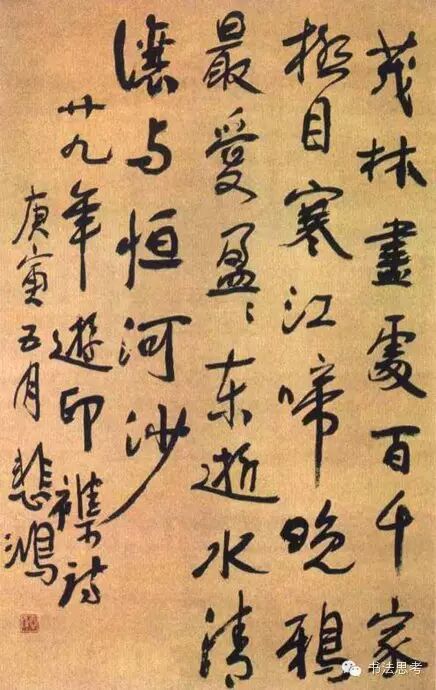 茂林盡處百千家
極目寒江啼晚鴉
最愛盈〻东逝水清
讓与恒河沙
廿九年遊印襍詩
庚寅五月悲鴻
书法思考